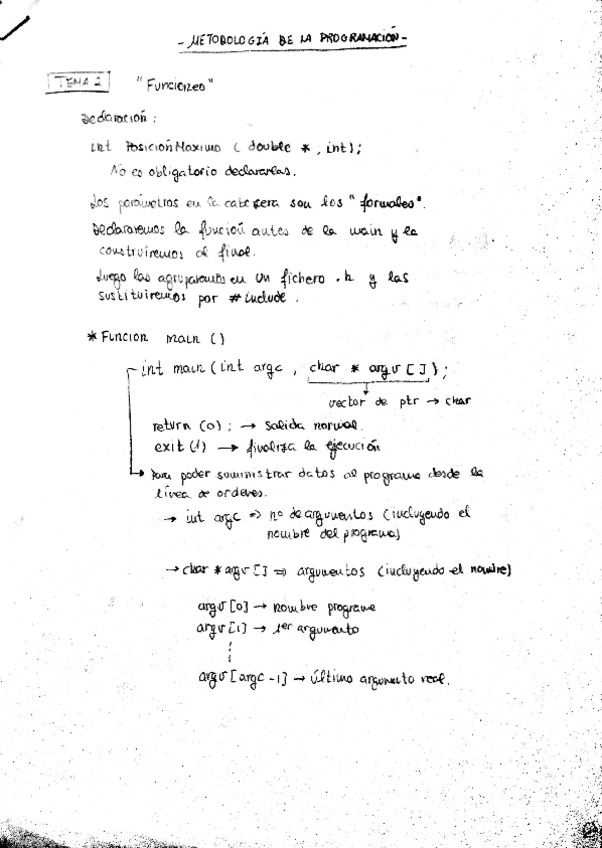 - METODOLOGÍA DE LA PROGRAMACIÓN -
TEMA 2 "Funciones"
Declaración:
int PosiciónMaximo ( double *, int);
No es obligatorio declararlas.
Los parámetros en la cabecera son los "formales".
Declararemos la función antes de la main y la
construiremos al final.
Luego las agruparemos en un fichero .h y las
sustituiremos por #include.
* Funcion main ()
int main (int argc, char * argv []);
vector de ptr → char
return (0); → salida normal.
exit (1) → finaliza la ejecución
Para poder suministrar datos al programa desde la
línea de ordenes.
→ int argc => nº de argumentos (incluyendo el
nombre del programa)
→ char * argv [] => argumentos (incluyendo el nombre)
argv [0] → nombre programa
argv [1] → 1er argumento
argv [argc -1] → último argumento real.